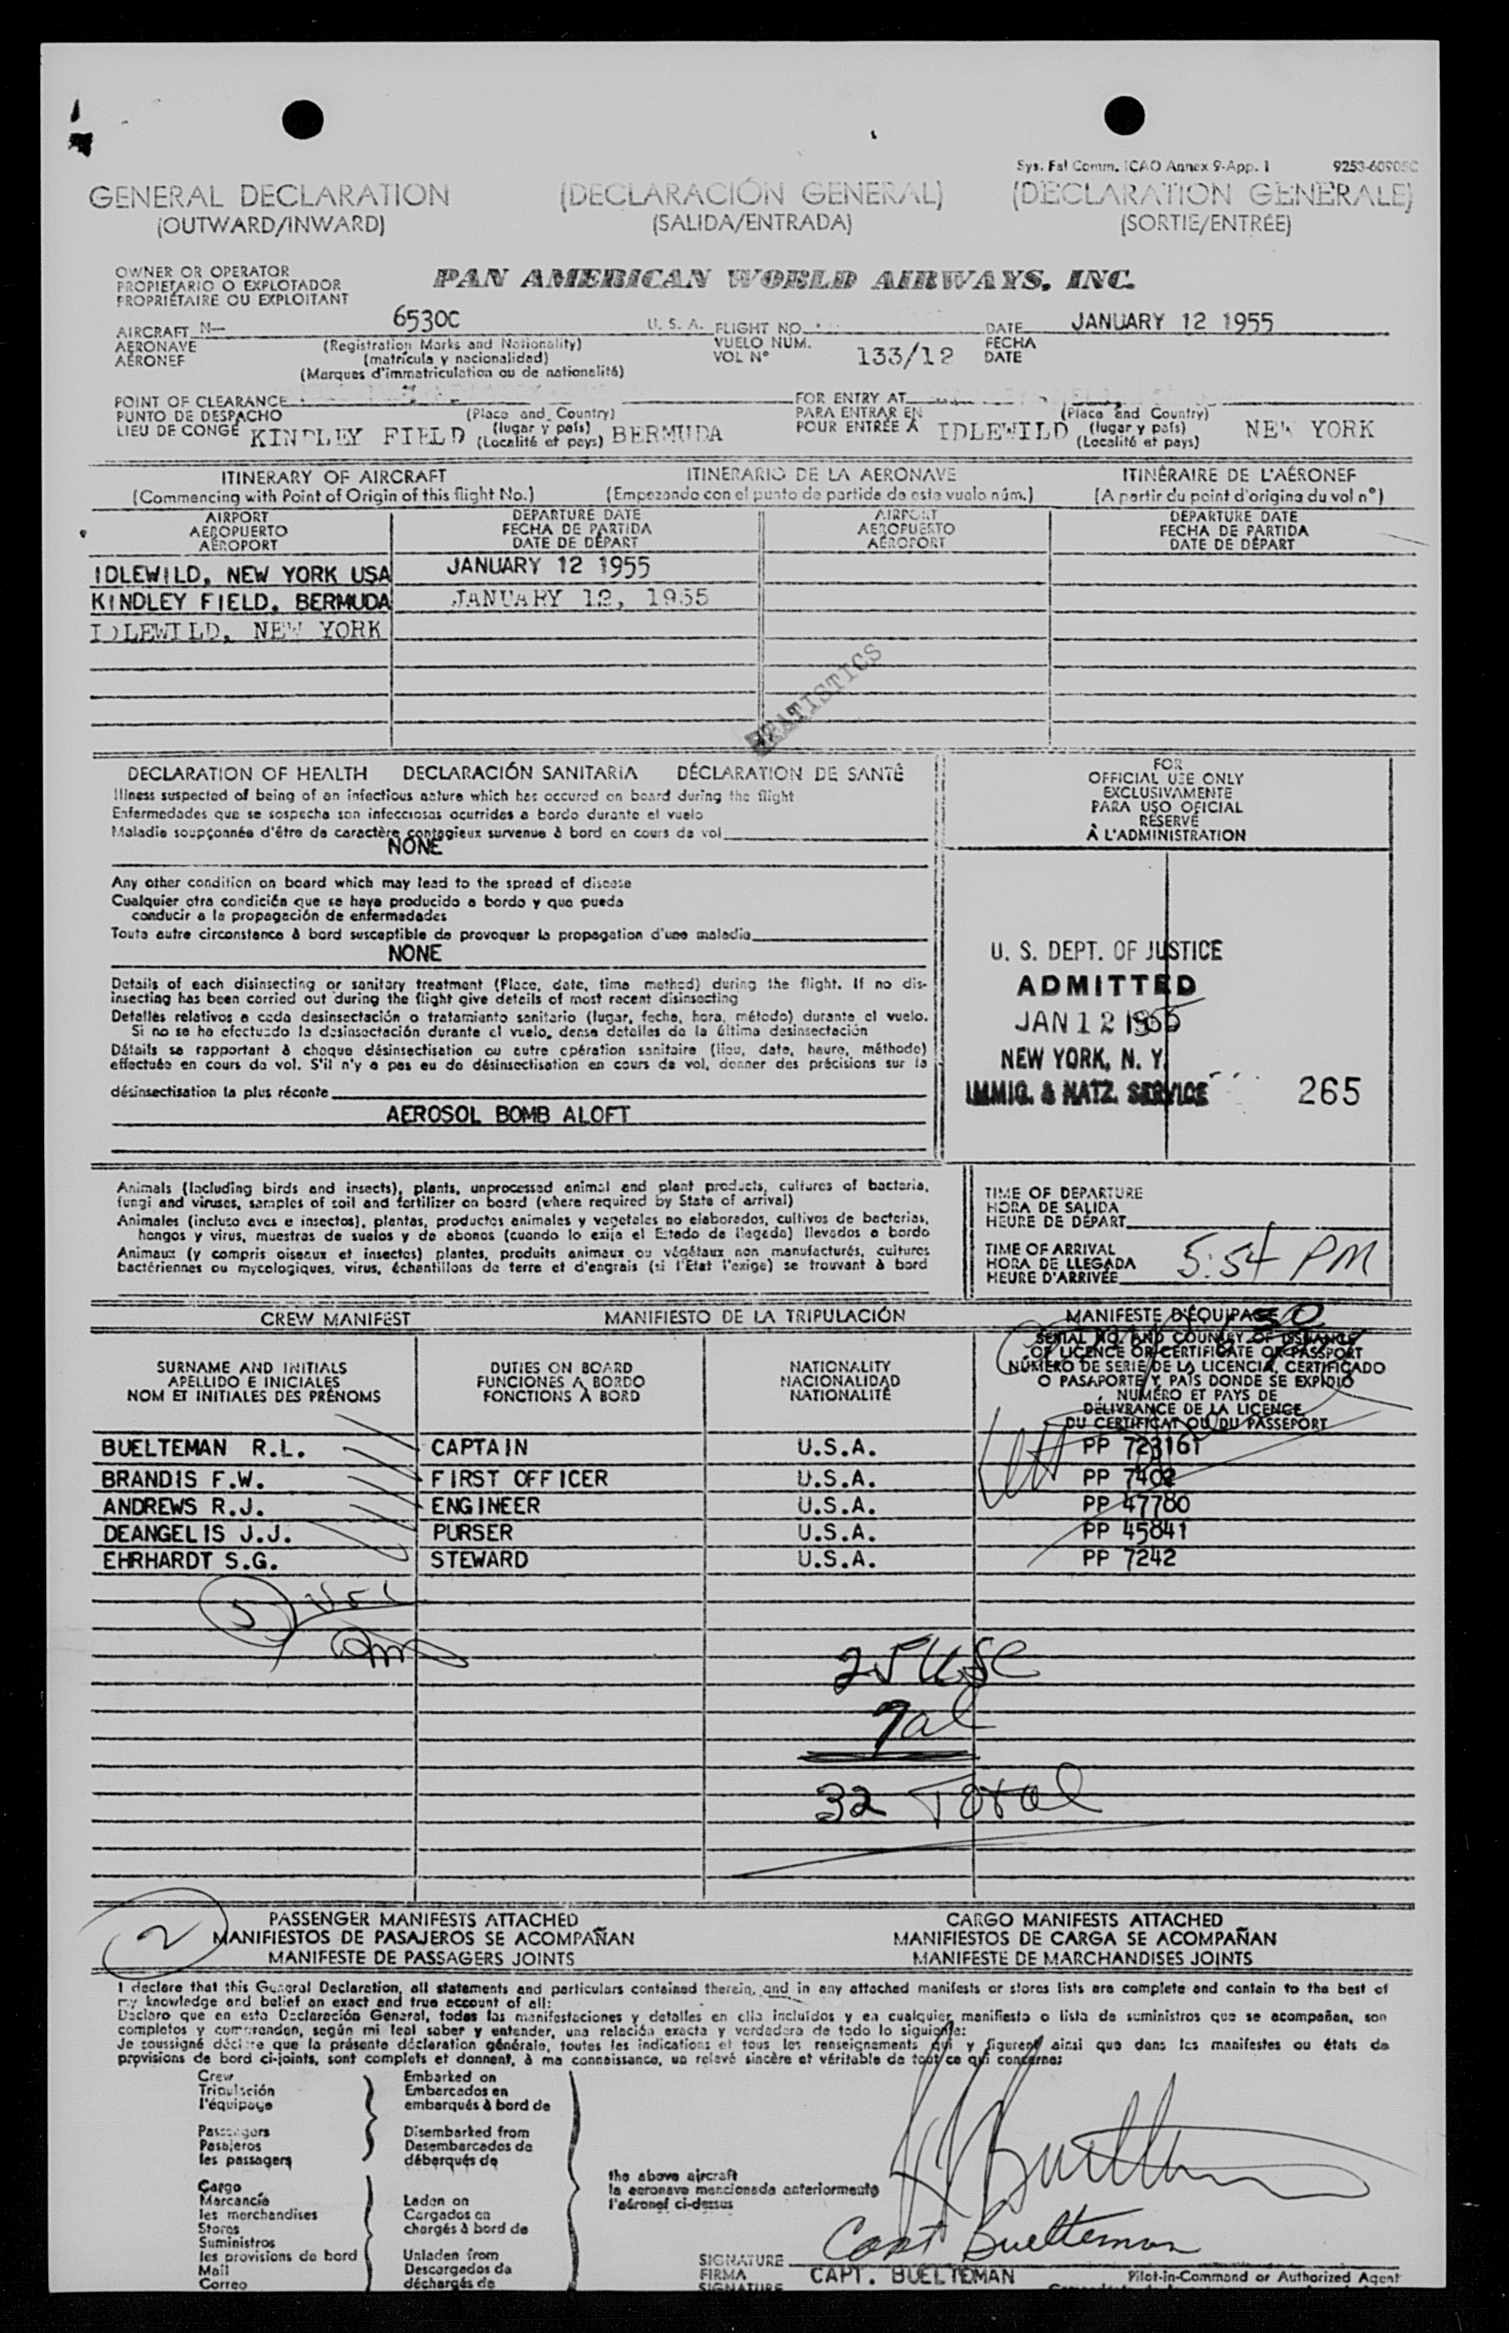 Sys. Fal Comm. ICAO Annex 9-App. 1
GENERAL DECLARATION
(OUTWARD/INWARD)
(DECLARACIÓN GENERAL)
(SALIDA/ENTRADA)
(DECLARATION GENERALE)
(SORTIE/ENTRÉE)
OWNER OR OPERATOR
PROPIETARIO O EXPLOTADOR
PROPRIÉTAIRE OU EXPLOITANT
PAN AMERICAN WORLD AIRWAYS, INC.
AIRCRAFT N— 6530C U. S. A.
AERONAVE
AÉRONEF
(Registration Marks and Nationality)
(matrícula y nacionalidad)
(Marques d'immatriculation ou de nationalité)
FLIGHT NO.
VUELO NÚM.
VOL Nº 133/12
DATE JANUARY 12 1955
FECHA
DATE
POINT OF CLEARANCE
PUNTO DE DESPACHO
LIEU DE CONGÉ KINDLEY FIELD
(Place and Country)
(lugar y país)
(Localité et pays)
BERMUDA
FOR ENTRY AT
PARA ENTRAR EN
POUR ENTRÉE À IDLEWILD
(Place and Country)
(lugar y país)
(Localité et pays)
NEW YORK
ITINERARY OF AIRCRAFT
(Commencing with Point of Origin of this flight No.)
ITINERARIO DE LA AERONAVE
(Empezando con el punto de partida de este vuelo núm.)
ITINÉRAIRE DE L'AÉRONEF
(A partir du point d'origine du vol nº)
AIRPORT
AEROPUERTO
AÉROPORT
DEPARTURE DATE
FECHA DE PARTIDA
DATE DE DÉPART
AIRPORT
AEROPUERTO
AÉROPORT
DEPARTURE DATE
FECHA DE PARTIDA
DATE DE DÉPART
IDLEWILD, NEW YORK USA JANUARY 12 1955
KINDLEY FIELD, BERMUDA JANUARY 12, 1955
IDLEWILD, NEW YORK
STATISTICS
DECLARATION OF HEALTH DECLARACIÓN SANITARIA DÉCLARATION DE SANTÉ
Illness suspected of being of an infectious nature which has occured on board during the flight
Enfermedades que se sospecha son infecciosas ocurridas a bordo durante el vuelo
Maladie soupçonnée d'être de caractère contagieux survenue à bord en cours de vol
NONE
Any other condition on board which may lead to the spread of disease
Cualquier otra condición que se haya producido a bordo y que pueda
conducir a la propagación de enfermedades
Toute autre circonstance à bord susceptible de provoquer la propagation d'une maladie
NONE
Details of each disinsecting or sanitary treatment (Place, date, time method) during the flight. If no dis-
insecting has been carried out during the flight give details of most recent disinsecting
Detalles relativos a cada desinsectación o tratamiento sanitario (lugar, fecha, hora, método) durante el vuelo.
Si no se ha efectuado la desinsectación durante el vuelo, dense detalles de la última desinsectación
Détails se rapportant à chaque désinsectisation ou autre opération sanitaire (lieu, date, heure, méthode)
effectuée en cours de vol. S'il n'y a pas eu de désinsectisation en cours de vol, donner des précisions sur la
désinsectisation la plus récente
AEROSOL BOMB ALOFT
FOR
OFFICIAL USE ONLY
EXCLUSIVAMENTE
PARA USO OFICIAL
RESERVÉ
À L'ADMINISTRATION
U. S. DEPT. OF JUSTICE
ADMITTED
JAN 12 1955
NEW YORK, N. Y.
IMMIG. & NATZ. SERVICE
265
Animals (including birds and insects), plants, unprocessed animal and plant products, cultures of bacteria,
fungi and viruses, samples of soil and fertilizer on board (where required by State of arrival)
Animales (incluso aves e insectos), plantas, productos animales y vegetales no elaborados, cultivos de bacterias,
hongos y virus, muestras de suelos y de abonos (cuando lo exija el Estado de llegada) llevados a bordo
Animaux (y compris oiseaux et insectes) plantes, produits animaux ou végétaux non manufacturés, cultures
bactériennes ou mycologiques, virus, échantillons de terre et d'engrais (si l'Etat l'exige) se trouvant à bord
TIME OF DEPARTURE
HORA DE SALIDA
HEURE DE DÉPART
TIME OF ARRIVAL
HORA DE LLEGADA
HEURE D'ARRIVÉE
5:54 PM
CREW MANIFEST MANIFIESTO DE LA TRIPULACIÓN MANIFESTE D'ÉQUIPAGE
SURNAME AND INITIALS
APELLIDO E INICIALES
NOM ET INITIALES DES PRÉNOMS
DUTIES ON BOARD
FUNCIONES A BORDO
FONCTIONS À BORD
NATIONALITY
NACIONALIDAD
NATIONALITÉ
SERIAL NO. AND COUNTRY OF ISSUANCE
OF LICENCE OR CERTIFICATE OR PASSPORT
NÚMERO DE SERIE DE LA LICENCIA, CERTIFICADO
O PASAPORTE Y PAÍS DONDE SE EXPIDIÓ
NUMÉRO ET PAYS DE
DÉLIVRANCE DE LA LICENCE
DU CERTIFICAT OU DU PASSEPORT
BUELTEMAN R.L. CAPTAIN U.S.A. PP 723161
BRANDIS F.W. FIRST OFFICER U.S.A. PP 7402
ANDREWS R.J. ENGINEER U.S.A. PP 47780
DEANGELIS J.J. PURSER U.S.A. PP 45841
EHRHARDT S.G. STEWARD U.S.A. PP 7242
5 USC
25 USC
7 al
32 Total
2
PASSENGER MANIFESTS ATTACHED
MANIFIESTOS DE PASAJEROS SE ACOMPAÑAN
MANIFESTE DE PASSAGERS JOINTS
CARGO MANIFESTS ATTACHED
MANIFIESTOS DE CARGA SE ACOMPAÑAN
MANIFESTE DE MARCHANDISES JOINTS
I declare that this General Declaration, all statements and particulars contained therein, and in any attached manifests or stores lists are complete and contain to the best of
my knowledge and belief an exact and true account of all:
Declaro que en esta Declaración General, todas las manifestaciones y detalles en ella incluídos y en cualquier manifiesto o lista de suministros que se acompañan, son
completos y comprenden, según mi leal saber y entender, una relación exacta y verdadera de todo lo siguiente:
Je soussigné déclare que la présente déclaration générale, toutes les indications et tous les renseignements qui y figurent ainsi que dans les manifestes ou états de
provisions de bord ci-joints, sont complets et donnent, à ma connaissance, un relevé sincère et véritable de tout ce qui concerne:
Crew
Tripulación
l'équipage
Passengers
Pasajeros
les passagers
Cargo
Mercancía
les marchandises
Stores
Suministros
les provisions de bord
Mail
Correo
Embarked on
Embarcados en
embarqués à bord de
Disembarked from
Desembarcados de
débarqués de
Laden on
Cargados en
chargés à bord de
Unladen from
Descargados de
déchargés de
the above aircraft
la aeronave mencionada anteriormente
l'aéronef ci-dessus
Capt Buelteman
SIGNATURE
FIRMA CAPT. BUELTEMAN
SIGNATURE
Pilot-in-Command or Authorized Agent